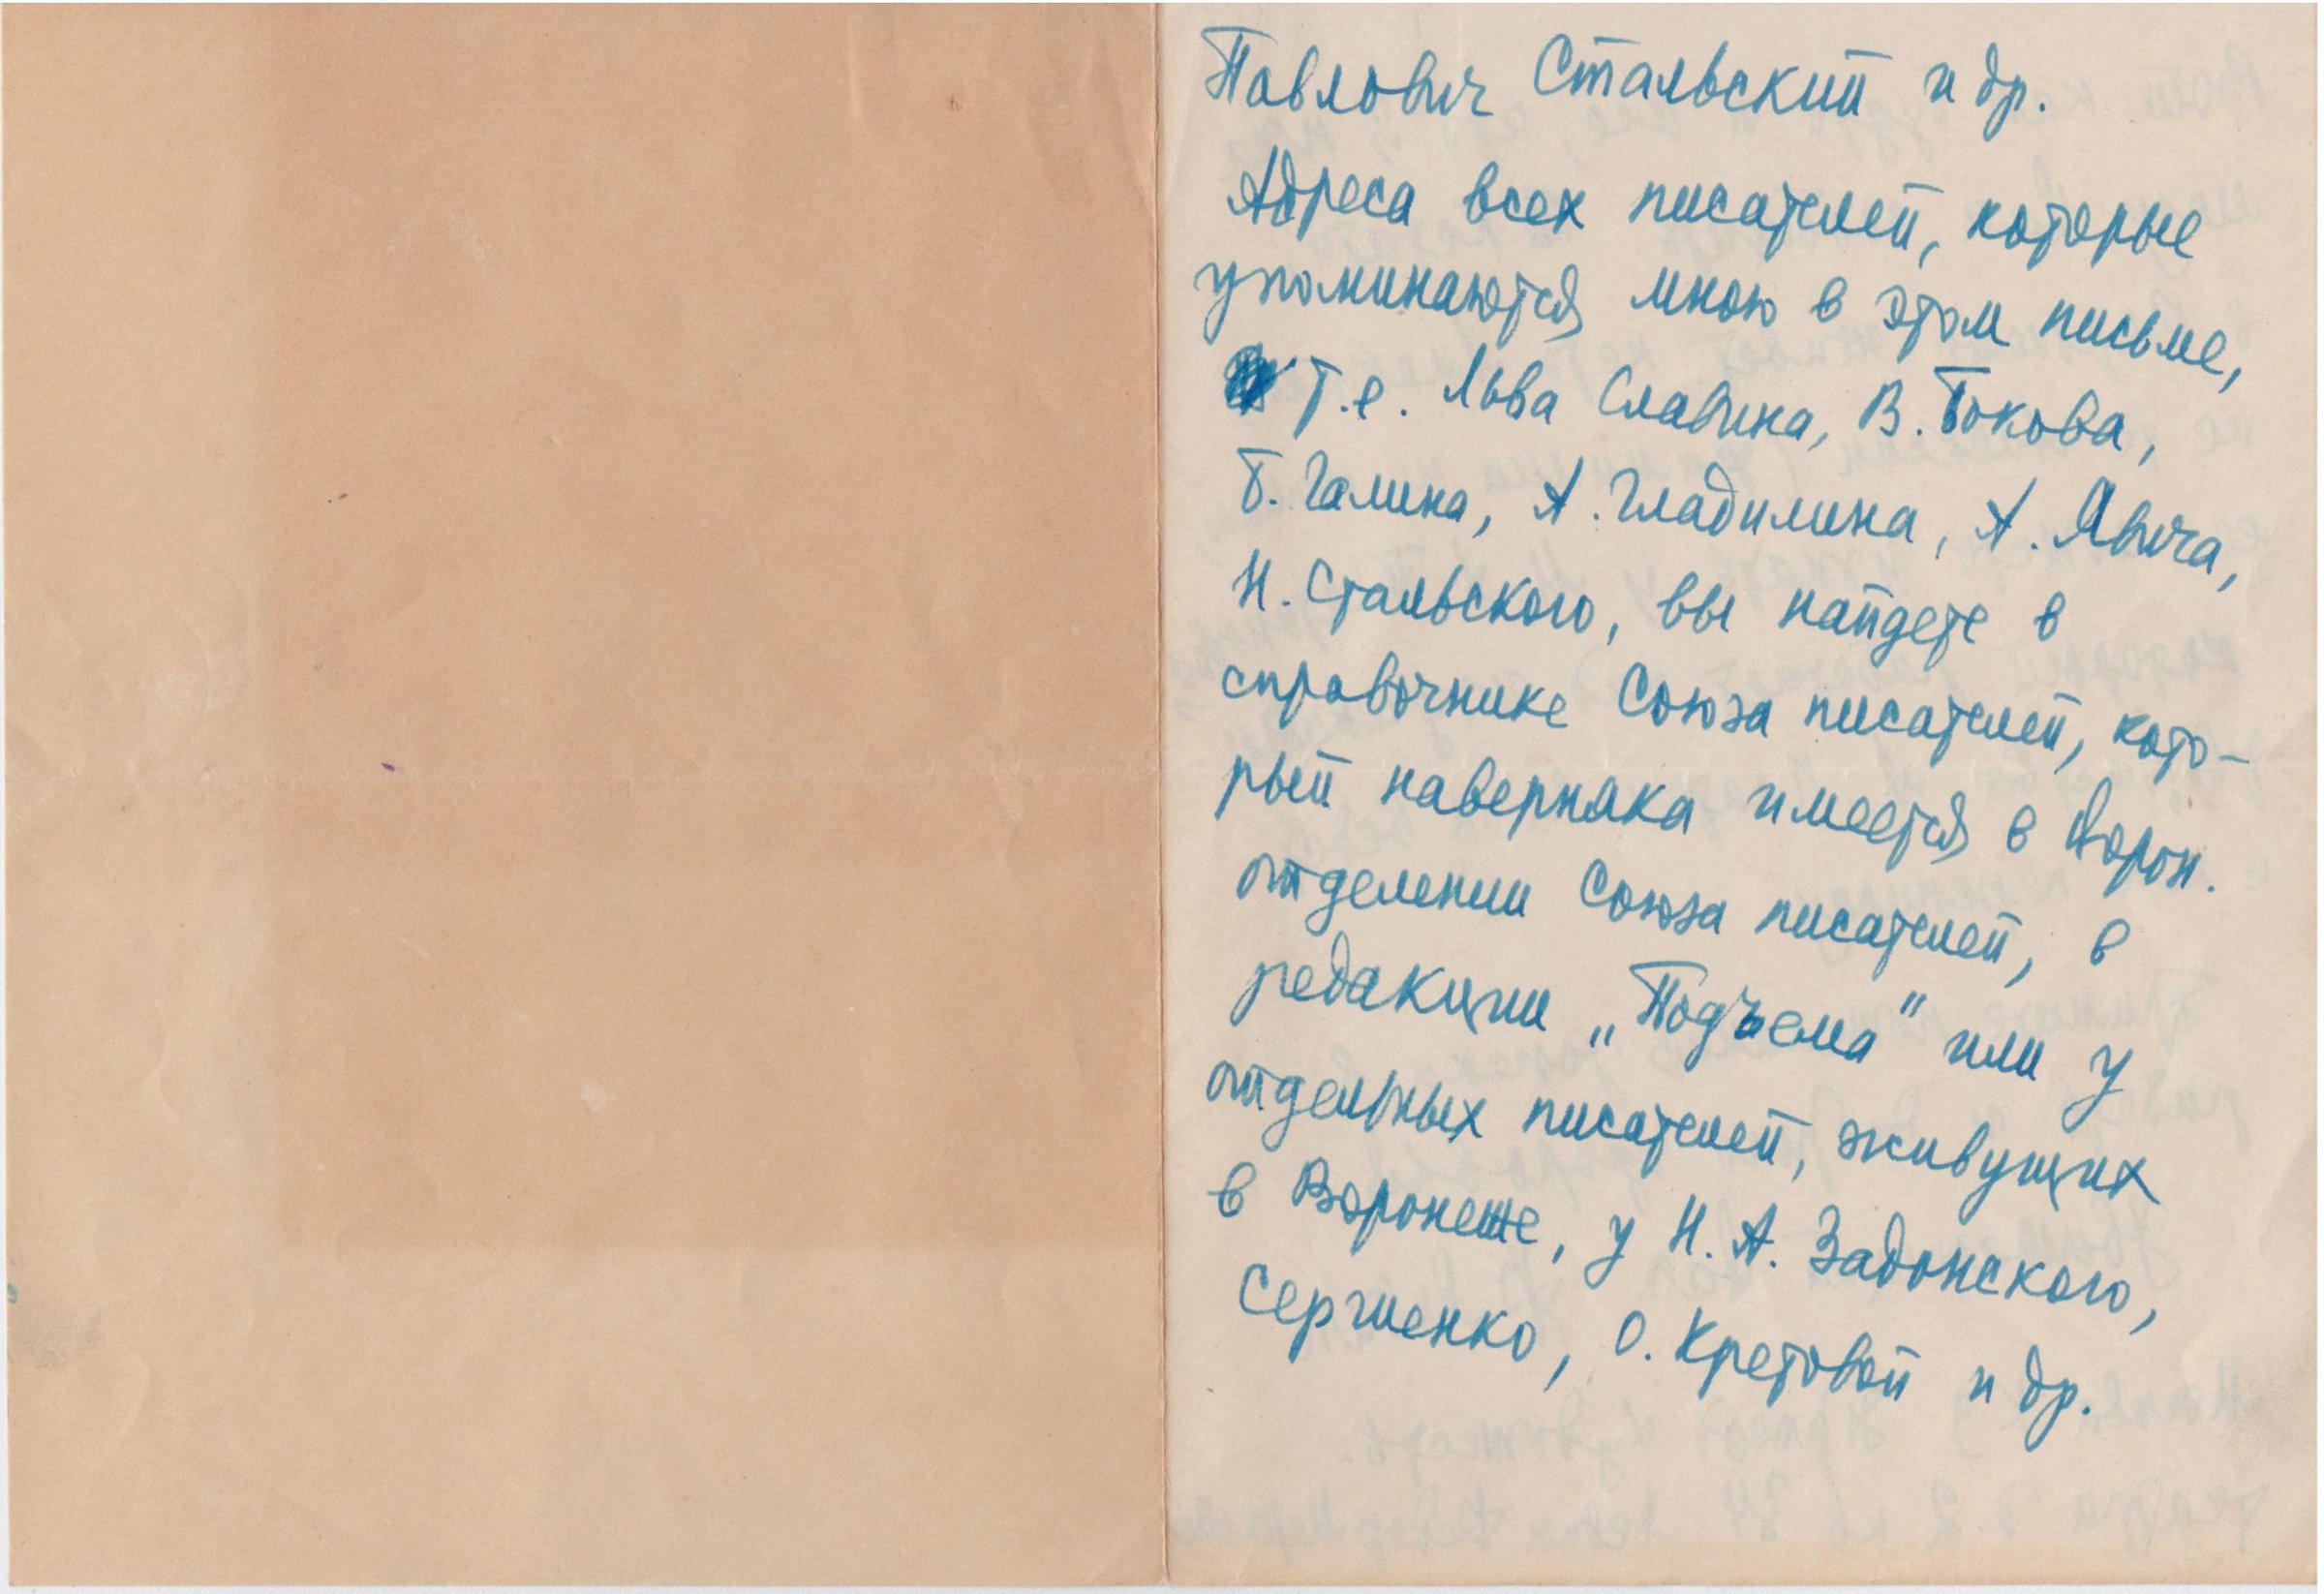 Павлович Стальский и др.
Адреса всех писателей, которые
упоминаются мною в этом письме,
т.е. Льва Славина, В. Бокова,
Б. Галина, А. Гладилина, А. Явича,
Н. Стальского, вы найдете в
справочнике Союза писателей, кото-
рый наверняка имеется в Ворон.
отделении Союза писателей, в
редакции „Подъема" или у
отдельных писателей, живущих
в Воронеже, у Н. А. Задонского,
Сергиенко, О. Кретовой и др.